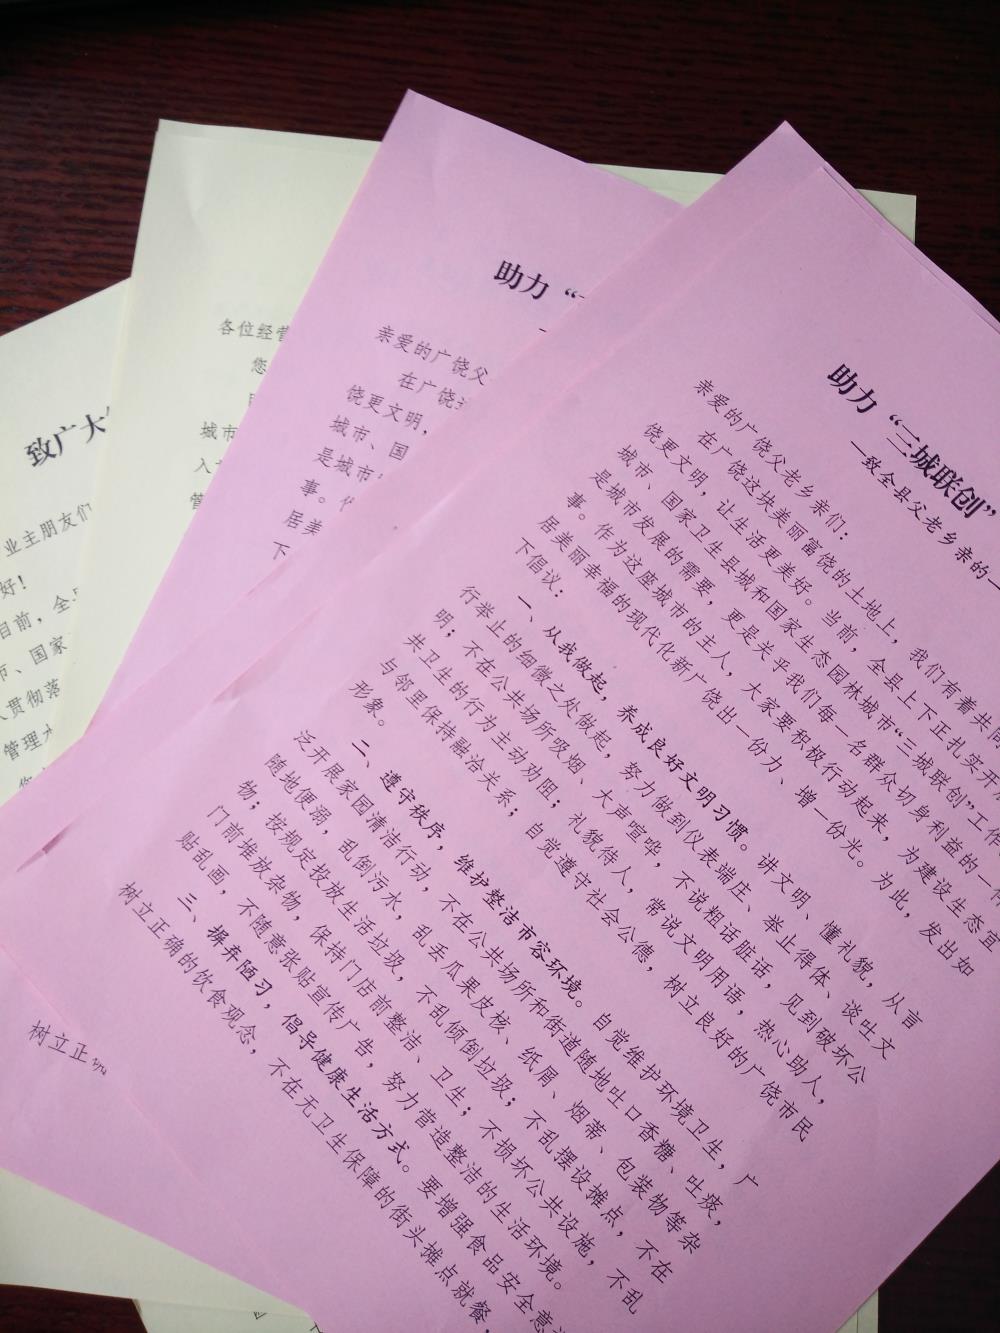 助力“三城联创”
—致全县父老乡亲的一
亲爱的广饶父老乡亲们：
在广饶这块美丽富饶的土地上，我们有着共同
饶更文明，让生活更美好。当前，全县上下正扎实开
城市、国家卫生县城和国家生态园林城市“三城联创”工作
是城市发展的需要，更是关乎我们每一名群众切身利益的一件
事。作为这座城市的主人，大家要积极行动起来，为建设生态宜
居美丽幸福的现代化新广饶出一份力、增一份光。为此，发出如
下倡议：
一、从我做起，养成良好文明习惯。讲文明、懂礼貌，从言
行举止的细微之处做起，努力做到仪表端庄、举止得体、谈吐文
明；不在公共场所吸烟、大声喧哗，不说粗话脏话，见到破坏公
共卫生的行为主动劝阻；礼貌待人，常说文明用语，热心助人，
与邻里保持融洽关系；自觉遵守社会公德，树立良好的广饶市民
形象。
二、遵守秩序，维护整洁市容环境。自觉维护环境卫生，广
泛开展家园清洁行动，不在公共场所和街道随地吐口香糖、吐痰，
随地便溺，乱倒污水，乱丢瓜果皮核、纸屑、烟蒂、包装物等杂
物；按规定投放生活垃圾，不乱倾倒垃圾；不乱摆设摊点，不在
门前堆放杂物，保持门店前整洁、卫生；不损坏公共设施，不乱
贴乱画，不随意张贴宣传广告，努力营造整洁的生活环境。
三、摒弃陋习，倡导健康生活方式。要增强食品安全意
树立正确的饮食观念，不在无卫生保障的街头摊点就餐，
助力“
亲爱的广饶父
在广饶
饶更文明，
城市、国
是城市
事。
居美
下
树立正
各位经营
您
城市
入
管
致广大
业主朋友们
好！
目前，全
市、国家
贯彻落
管理